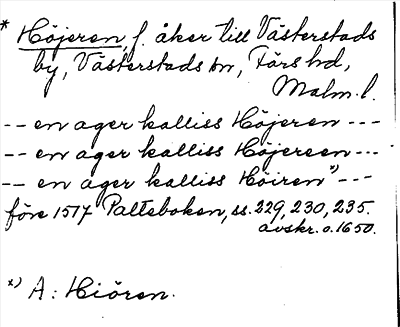 * Höjeren, f. åker till Västerstads
by, Västerstads sn, Färs hd,
Malm. l.
-- en ager kalliss Höjeren ---
-- en ager kalliss Höjereen ---
-- en ager kalliss Höiren *) ---
före 1517 Palteboken, ss. 229, 230, 235.
avskr. o. 1650.
*) A: Hiören.